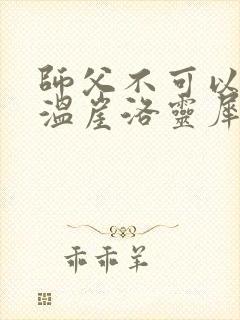 師父不可以
溫崖洛靈犀
乖乖羊